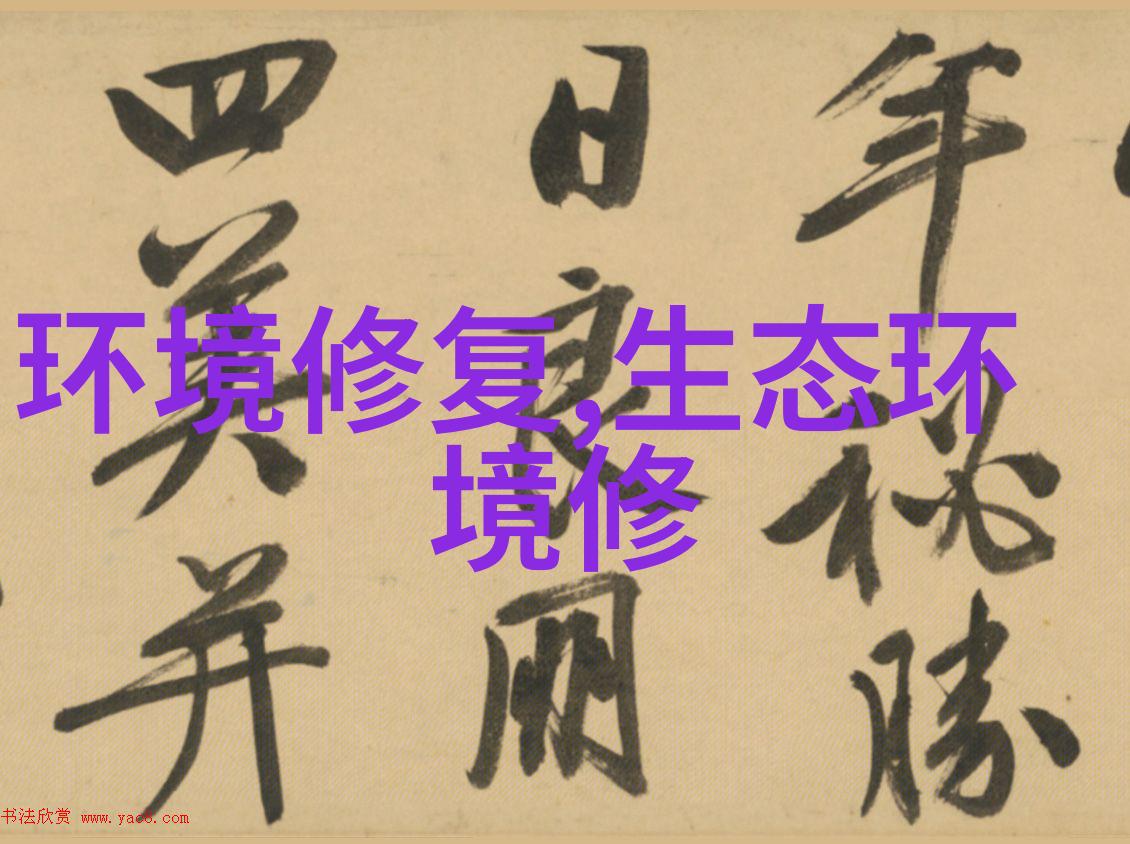 年秘勝
日良朋
四美并
环境修复,生态环
境修
书法欣赏 www.yac8.com